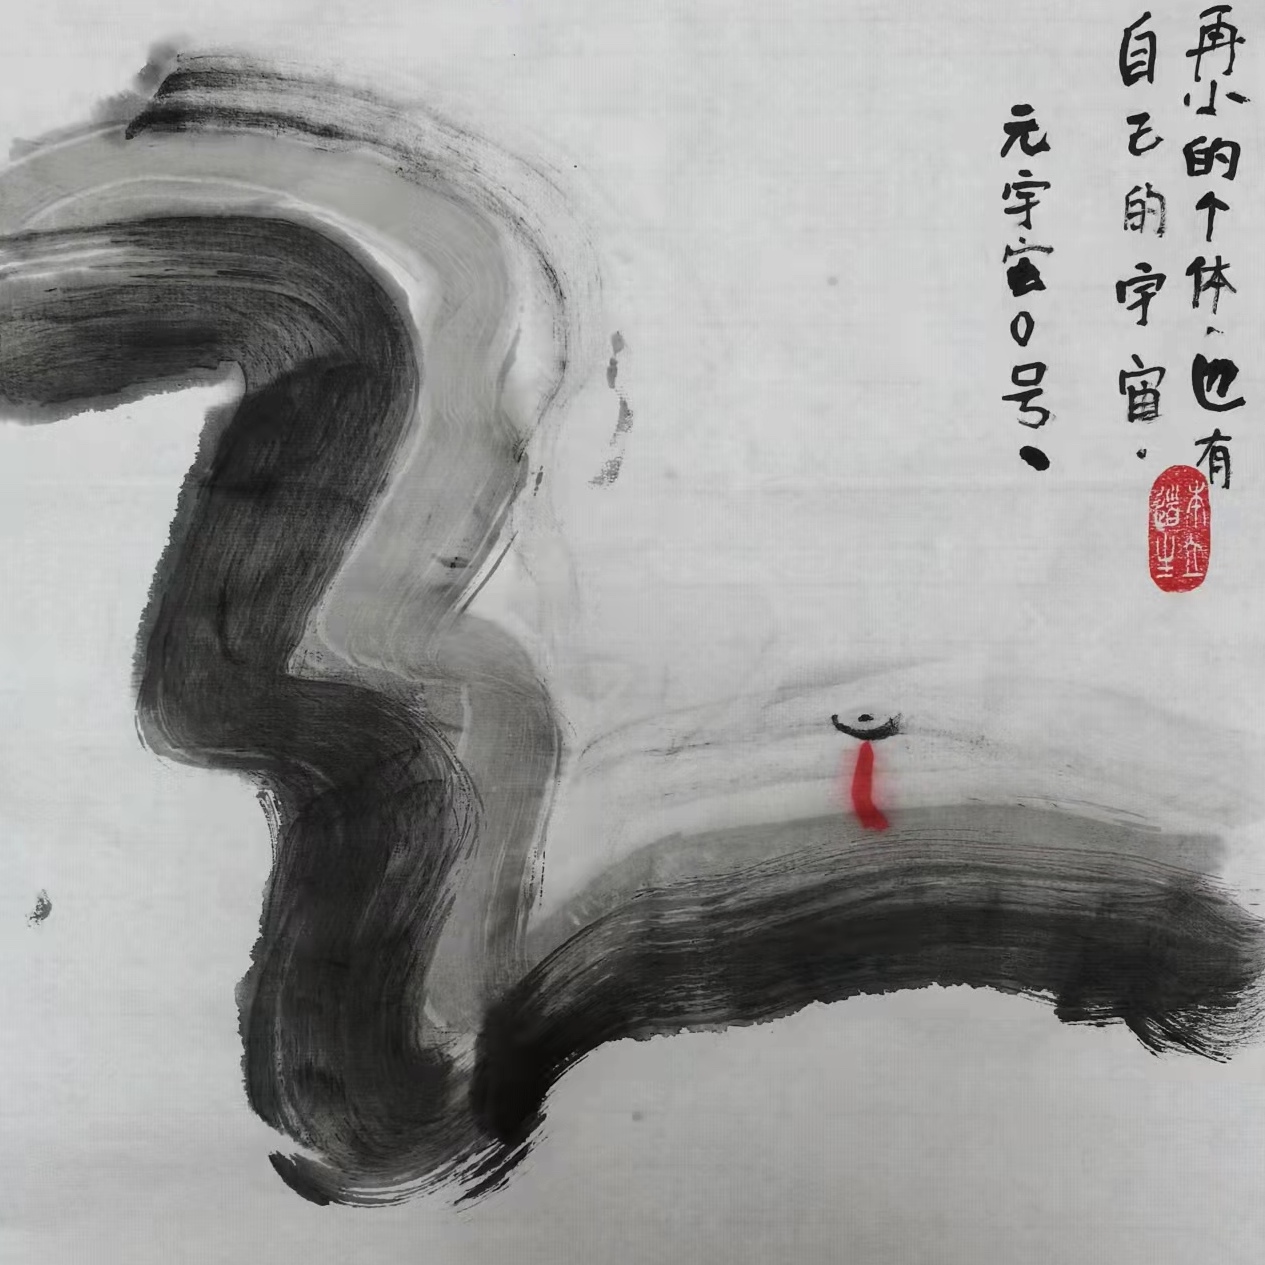 再小的个体.也有
自己的宇宙.
元宇宙0号